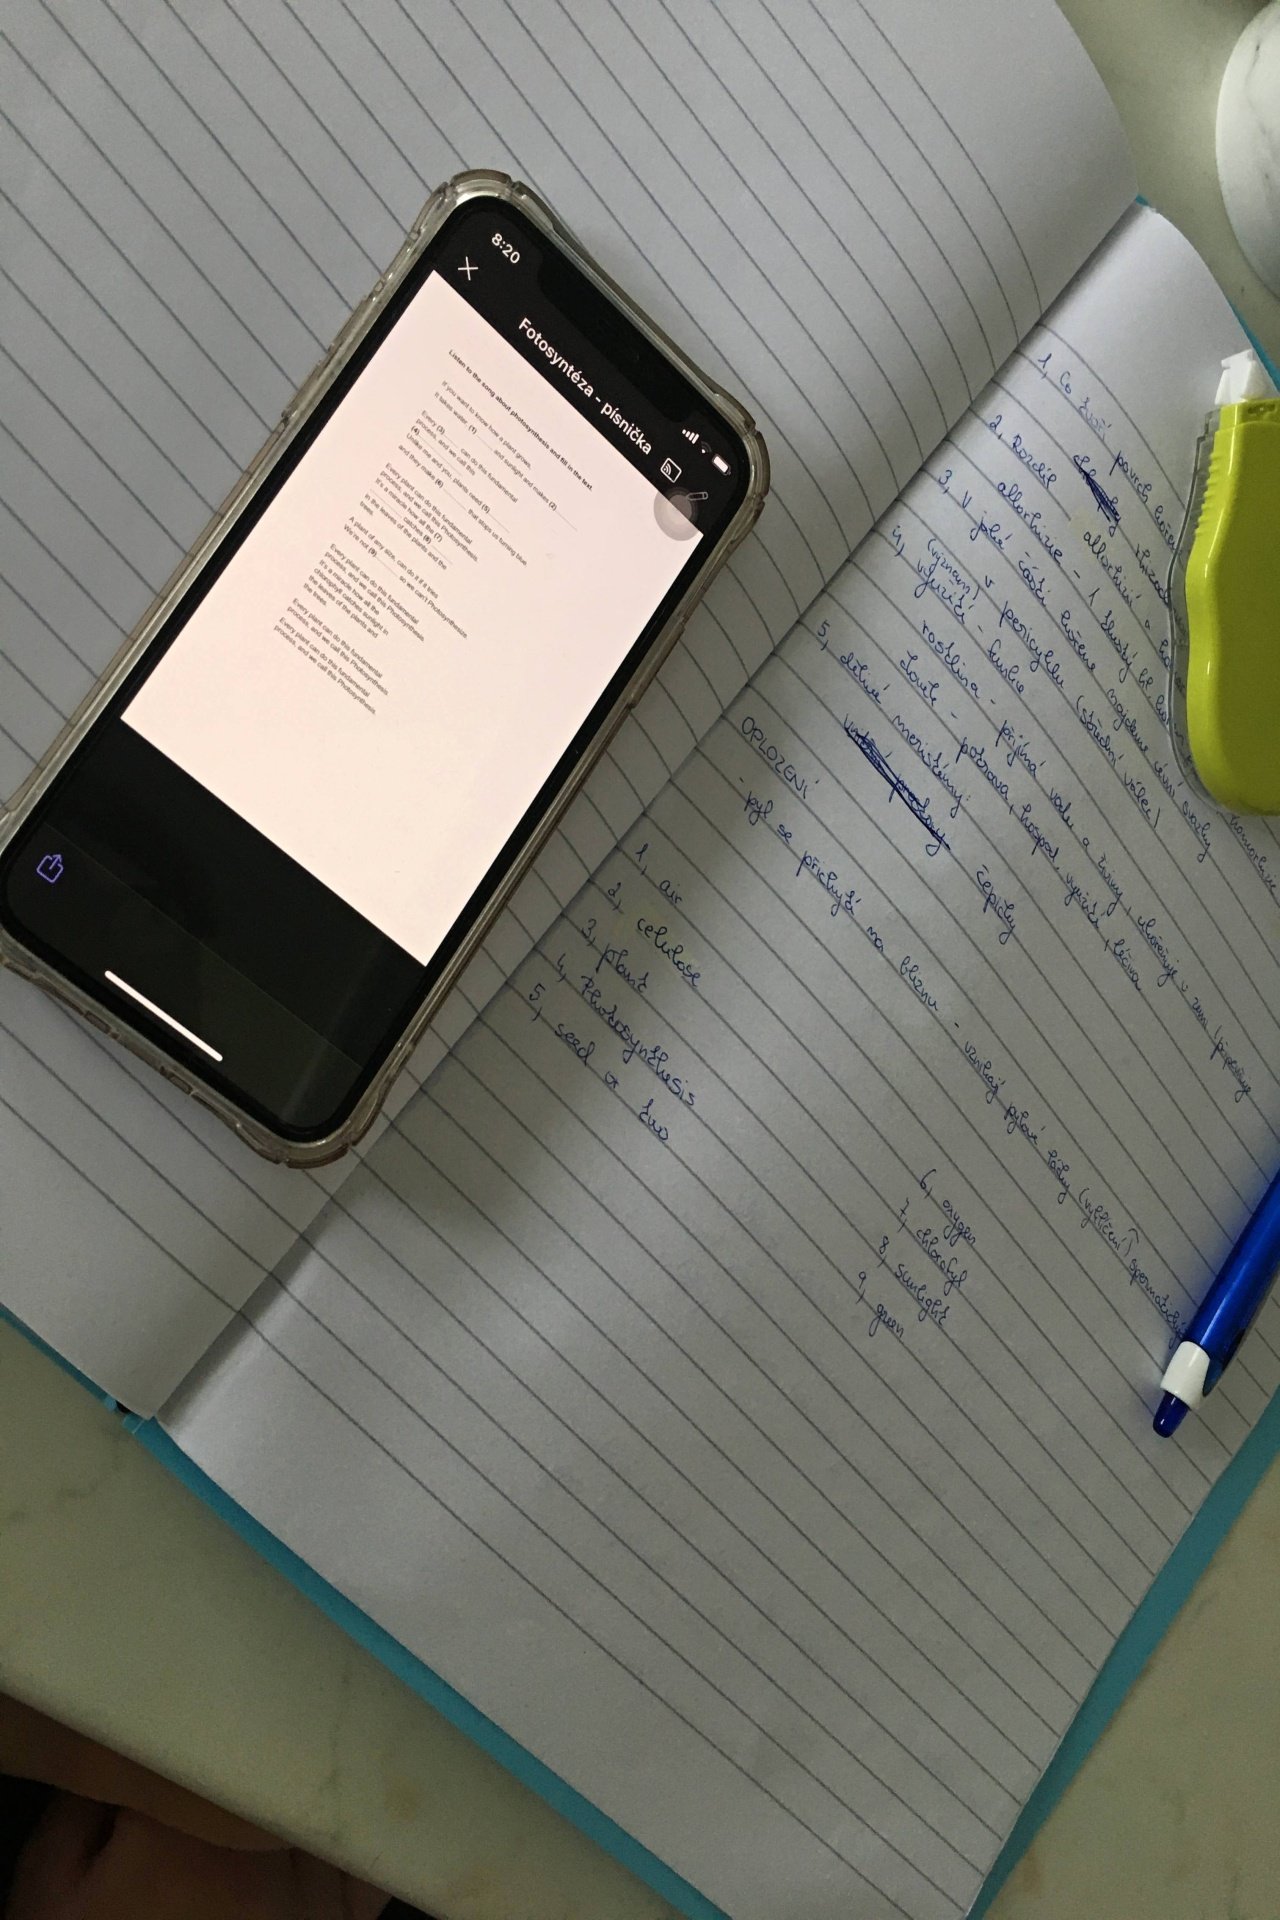 8:20
Fotosyntéza - písnička
Listen to the song about photosynthesis and fill in the text.
If you want to know how a plant grows,
It takes water, (1) and sunlight and makes (2)
Every (3) can do this fundamental
process, and we call this
(4)
Unlike me and you, plants need (5)
and they make (6) that stops us turning blue
Every plant can do this fundamental
process, and we call this Photosynthesis.
It's a miracle how all the (7)
catches (8)
in the leaves of the plants and the
trees.
A plant of any size, can do it if it tries
We're not (9) so we can't Photosynthesize
Every plant can do this fundamental
process, and we call this Photosynthesis.
It's a miracle how all the
chlorophyll catches sunlight in
the leaves of the plants and
the trees.
Every plant can do this fundamental
process, and we call this Photosynthesis
Every plant can do this fundamental
process, and we call this Photosynthesis.
1, Co tvoří povrch kořen
2, Rozdíl allorhizií a
allorhizie - 1 tlustý hl.
3, V jaké části kořene najdeme cévní svazky
v pericyklu (střední válec)
4, (význam)
využití - funkce
rostlina - přijímá vodu a živiny, ukotvuje v zemi
člověk - potrava, hospod. využití, léčiva
5, dělivé meristémy:
čepičky
OPLOZENÍ
- pyl se přichytí na bliznu - vznikají pylové láčky (vyklíčení)
1, air
2, celulose
3, plant
4, Photosynthesis
5, seed
6, oxygen
7, chlorofyl
8, sunlight
9, green